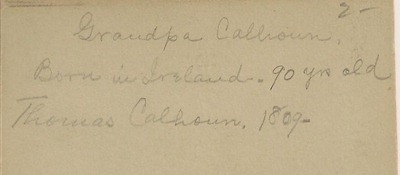 2-
Grandpa Calhoun.
Born in Ireland - 90 yrs old
Thomas Calhoun, 1809-